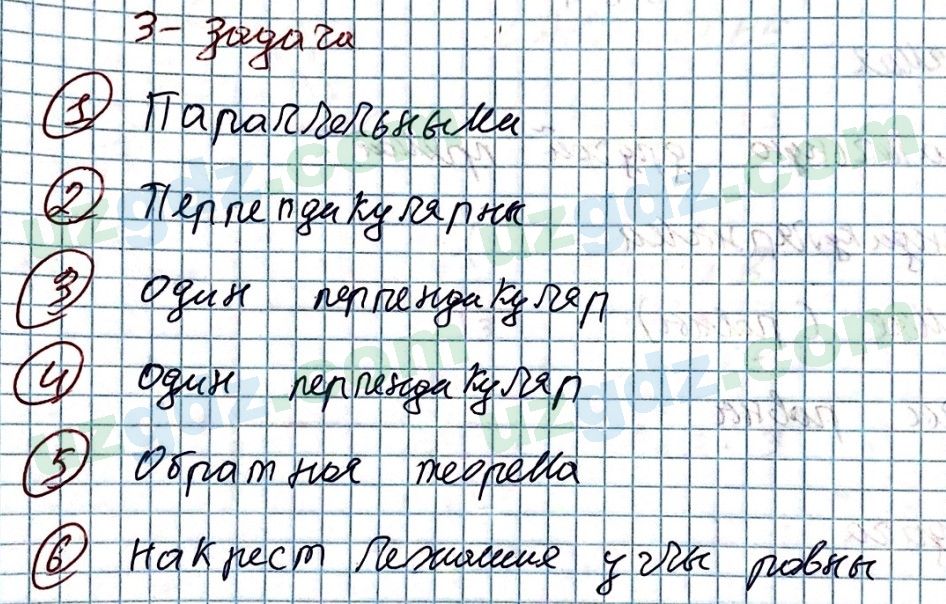 3- задача
1 Параллельными
2 Перпендикулярны
3 один перпендикуляр
4 один перпендикуляр
5 Обратная теорема
6 накрест лежащие углы равны
uzgdz.com
uzgdz.com
uzgdz.com
uzgdz.com